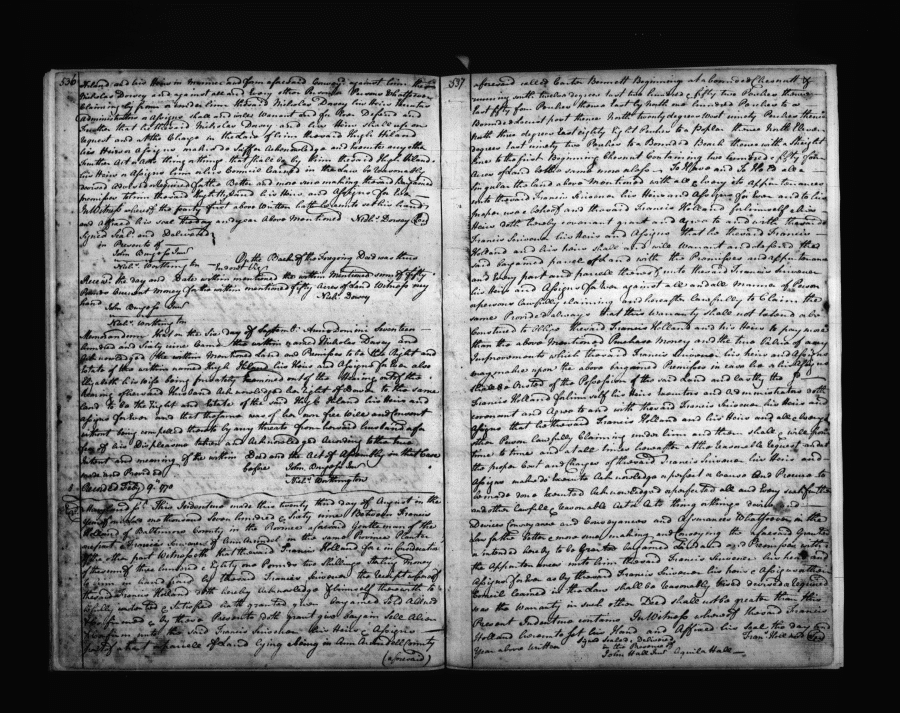 536
Holland and his Heirs in manner and form aforesaid Conveyed against him the said
Nicholas Dorsey and against all and Every other Person or Persons Whatsoever
Claiming by from or under him the said Nicholas Dorsey his Heirs Executors
Administrators or Assigns shall and will Warrant and for Ever Defend and
Further that he the said Nicholas Dorsey and his Heirs shall upon
request and at the Charge in the Law of him the said Hugh Holland
his Heirs or Assigns make do Suffer Acknowledge and Execute any other
Another Act or Acts thing or things that shall be by him the said Hugh Holland
his Heirs or Assigns him or his Council Learned in the Law be reasonably
devised Advised or Required for the Better and more sure making the said Bargained
premises to him the said Hugh Holland his Heirs and Assigns for Ever
In Witness whereof the party first above Written hath hereunto set his hand
and Affixed his Seal the day and year Above Mentioned Nichs. Dorsey
Signed Seal'd and Delivered
in Presents of
John Burgess Junr
Nichs. Worthington
On the Back of the foregoing Deed was thus
Receiv'd the day and Date within mentioned the within mentioned sum of fifty
Pounds Current Money for the within mentioned fifty Acres of land Witness my
hand
Nichs. Dorsey
John Burgess Junr
Nichs. Worthington
Memorandum that on the Six day of September Annoqdomini Seventeen
hundred and Sixty nine Came the within named Nicholas Dorsey and
Acknowledged the within Mentioned Land and Premises to be the Right and
Estate of the within named Hugh Holland his Heirs and Assigns for Ever also
Elizabeth his Wife being privately Examined out of the Hearing
hearing of her said Husband Acknowledged her Right of Dower to the same
land to be the Right and Estate of the said Hugh Holland his Heirs and
Assigns for Ever and that the same was of her own free Will and Consent
without being compelled thereto by any threats from her said husband or for
fear of his Displeasure taken and Acknowledged According to the true
Intent and meaning of the within Deed and the Act of Assembly in that Case
made and Provided
before John Burgess Junr
Nichs. Worthington
Recorded Feby 9. 1770
Maryland This Indenture made this twenty third day of August in the
year of our Lord one thousand Seven hundred & Sixty nine Between Francis
Holland of Baltimore County in the Province aforesaid Gentleman of the
one part & Francis Simerson of Ann Arundel in the same Province Planter
of the other part Witnesseth that the said Francis Holland for & in Consideration
of the sum of three hundred & Eighty one Pounds two Shillings Sterling Money
to him in hand paid by the said Francis Simerson the Receipt whereof
the said Francis Holland doth hereby Acknowledge & himself therewith to
be fully contented & Satisfied hath granted, given bargained Sold Aliened
& confirmed & by these Presents doth grant give bargain Sell Alien
& confirm unto the said Francis Simerson his Heirs & Assigns
part of a tract or parcell of land lying & being in Ann Arundell County
(aforesaid)
537
aforesaid called Carter Bennett Beginning at a bounded Chesnutt &
running south twelve degrees East two hundred & fifty two Perches thence
East fifty four Perches thence East by North one hundred Perches to a
Bounded locust post thence North twenty degrees West ninety Perches thence
North three degrees East eighty Eight Perches to a Poplar thence North Eleven
degrees East ninety two Perches to a Bounded Beach thence with a Straight
line to the first Beginning Chesnut Containing two hundred & fifty
Acres of land be the same more or less To Have and To Hold all &
Singular the land above Mentioned with all & Every its Appurtenances
unto the said Francis Simerson his Heirs and Assigns for Ever and to his
proper use & behoof and the said Francis Holland for himself & his
Heirs doth hereby covenant grant and Agree to and with the said
Francis Simerson his Heirs and Assigns that he the said Francis
Holland and his heirs shall and will Warrant and defend the
said bargained parcel of land with the Premises and appurtenances
and Every part and parcell thereof unto the said Francis Simerson
his Heirs and Assigns for Ever against all and all manner of Person
or persons lawfully claiming and hereafter Lawfully to Claim the
same Provided always that this Warranty shall not Extend or be
Construed to Oblige the said Francis Holland and his Heirs to pay more
than the above Mentioned Purchase Money and the true Value of any
Improvements which the said Francis Simerson his Heirs and Assigns
may make upon the above bargained Premises in case he or his Assigns
shall be Ousted of the Possession of the said Land and lastly the said
Francis Holland for himself his Heirs Executors and Administrators doth
covenant and Agree to and with the said Francis Simerson his Heirs and
Assigns that he the said Francis Holland and his Heirs and all & Every
other Person lawfully Claiming under him and them shall & will from
time to time and at all times hereafter at the reasonable Request and at
the proper Cost and Charges of the said Francis Simerson his Heirs and
Assigns make do Execute Acknowledge & perfect or cause And Procure to
be made done Executed Acknowledged & perfected all and Every such further
and other lawfull & reasonable Act or Acts thing or things devise
Devices Conveyance and Conveyances and Assurances Whatsoever in the
Law for the better & more sure making and Conveying the aforesaid granted
or intended hereby to be Granted bargained land and Premises with
the Appurtenances unto him the said Francis Simerson his heirs and
Assigns for Ever as by the said Francis Simerson his heirs & Assigns or their
Council learned in the Law shall be reasonably devised advised & required
was the Warranty in such other Deed shall not be greater than this
Present Indenture contains In Witness whereof the said Francis
Holland hereunto Set his Hand and Affixed his Seal the day and
Year above Written
Fran. Holland
Signed Sealed & Delivered
in the Presence of
John Hall Junr Aquila Hall